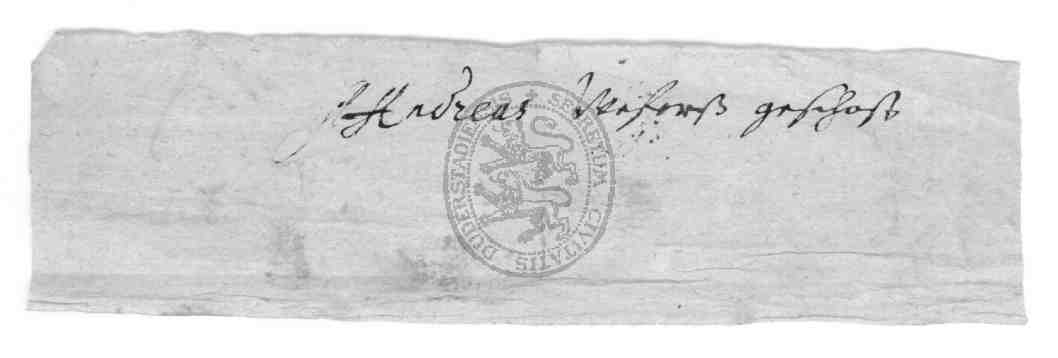 Andreas Weserß geschoß
SECRETUM CIVITATIS DUDERSTADIENSIS